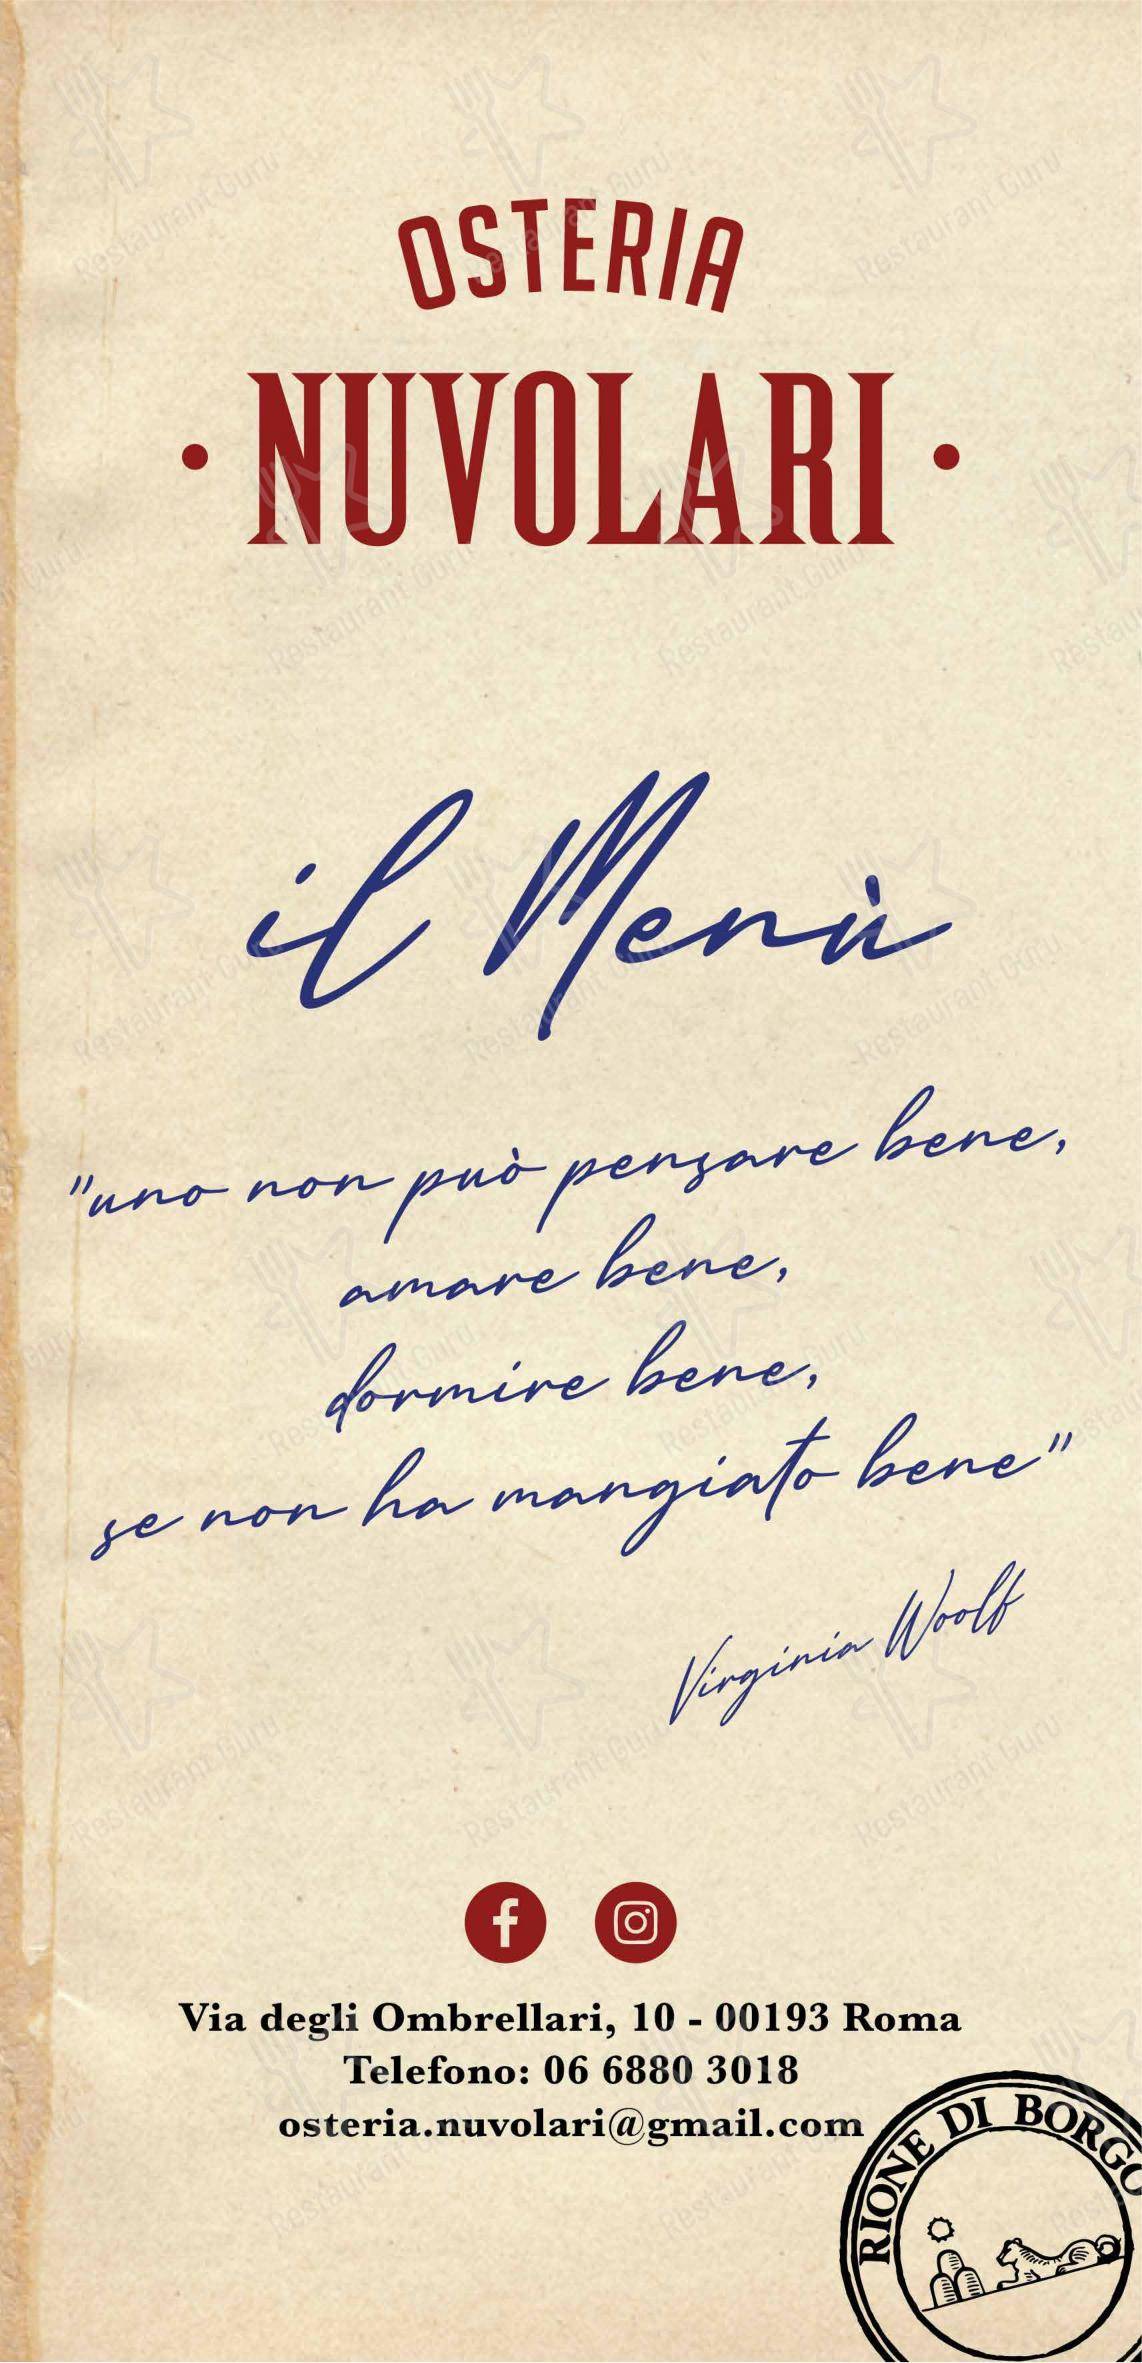 OSTERIA
• NUVOLARI •
il Menù
"uno non può pensare bene,
amare bene,
dormire bene,
se non ha mangiato bene"
Virginia Woolf
Via degli Ombrellari, 10 - 00193 Roma
Telefono: 06 6880 3018
osteria.nuvolari@gmail.com
RIONE DI BORGO
Restaurant Guru